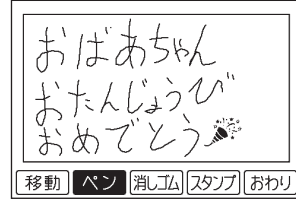 おばあちゃん
おたんじょうび
おめでとう
移動 ペン 消しゴム スタンプ おわり